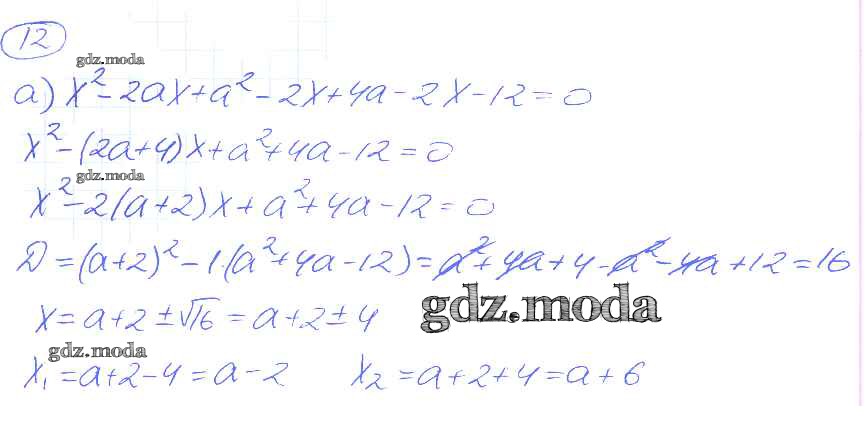 12
gdz.moda
а) x² - 2ax + a² - 2x + 4a - 2x - 12 = 0
x² - (2a + 4)x + a² + 4a - 12 = 0
gdz.moda
x² - 2(a + 2)x + a² + 4a - 12 = 0
D = (a + 2)² - 1·(a² + 4a - 12) = a² + 4a + 4 - a² - 4a + 12 = 16
x = a + 2 ± √16 = a + 2 ± 4
gdz.moda
gdz.moda
x₁ = a + 2 - 4 = a - 2 x₂ = a + 2 + 4 = a + 6